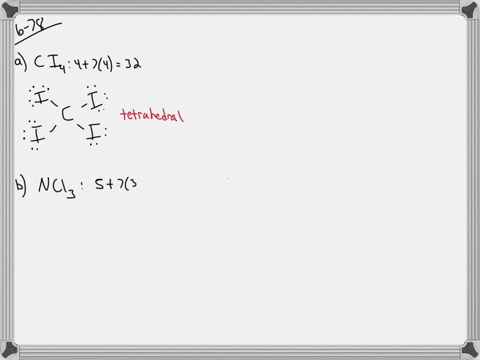 6-78
a) CI₄: 4+7(4)=32
I I
C
I I
tetrahedral
b) NCl₃: 5+7(3